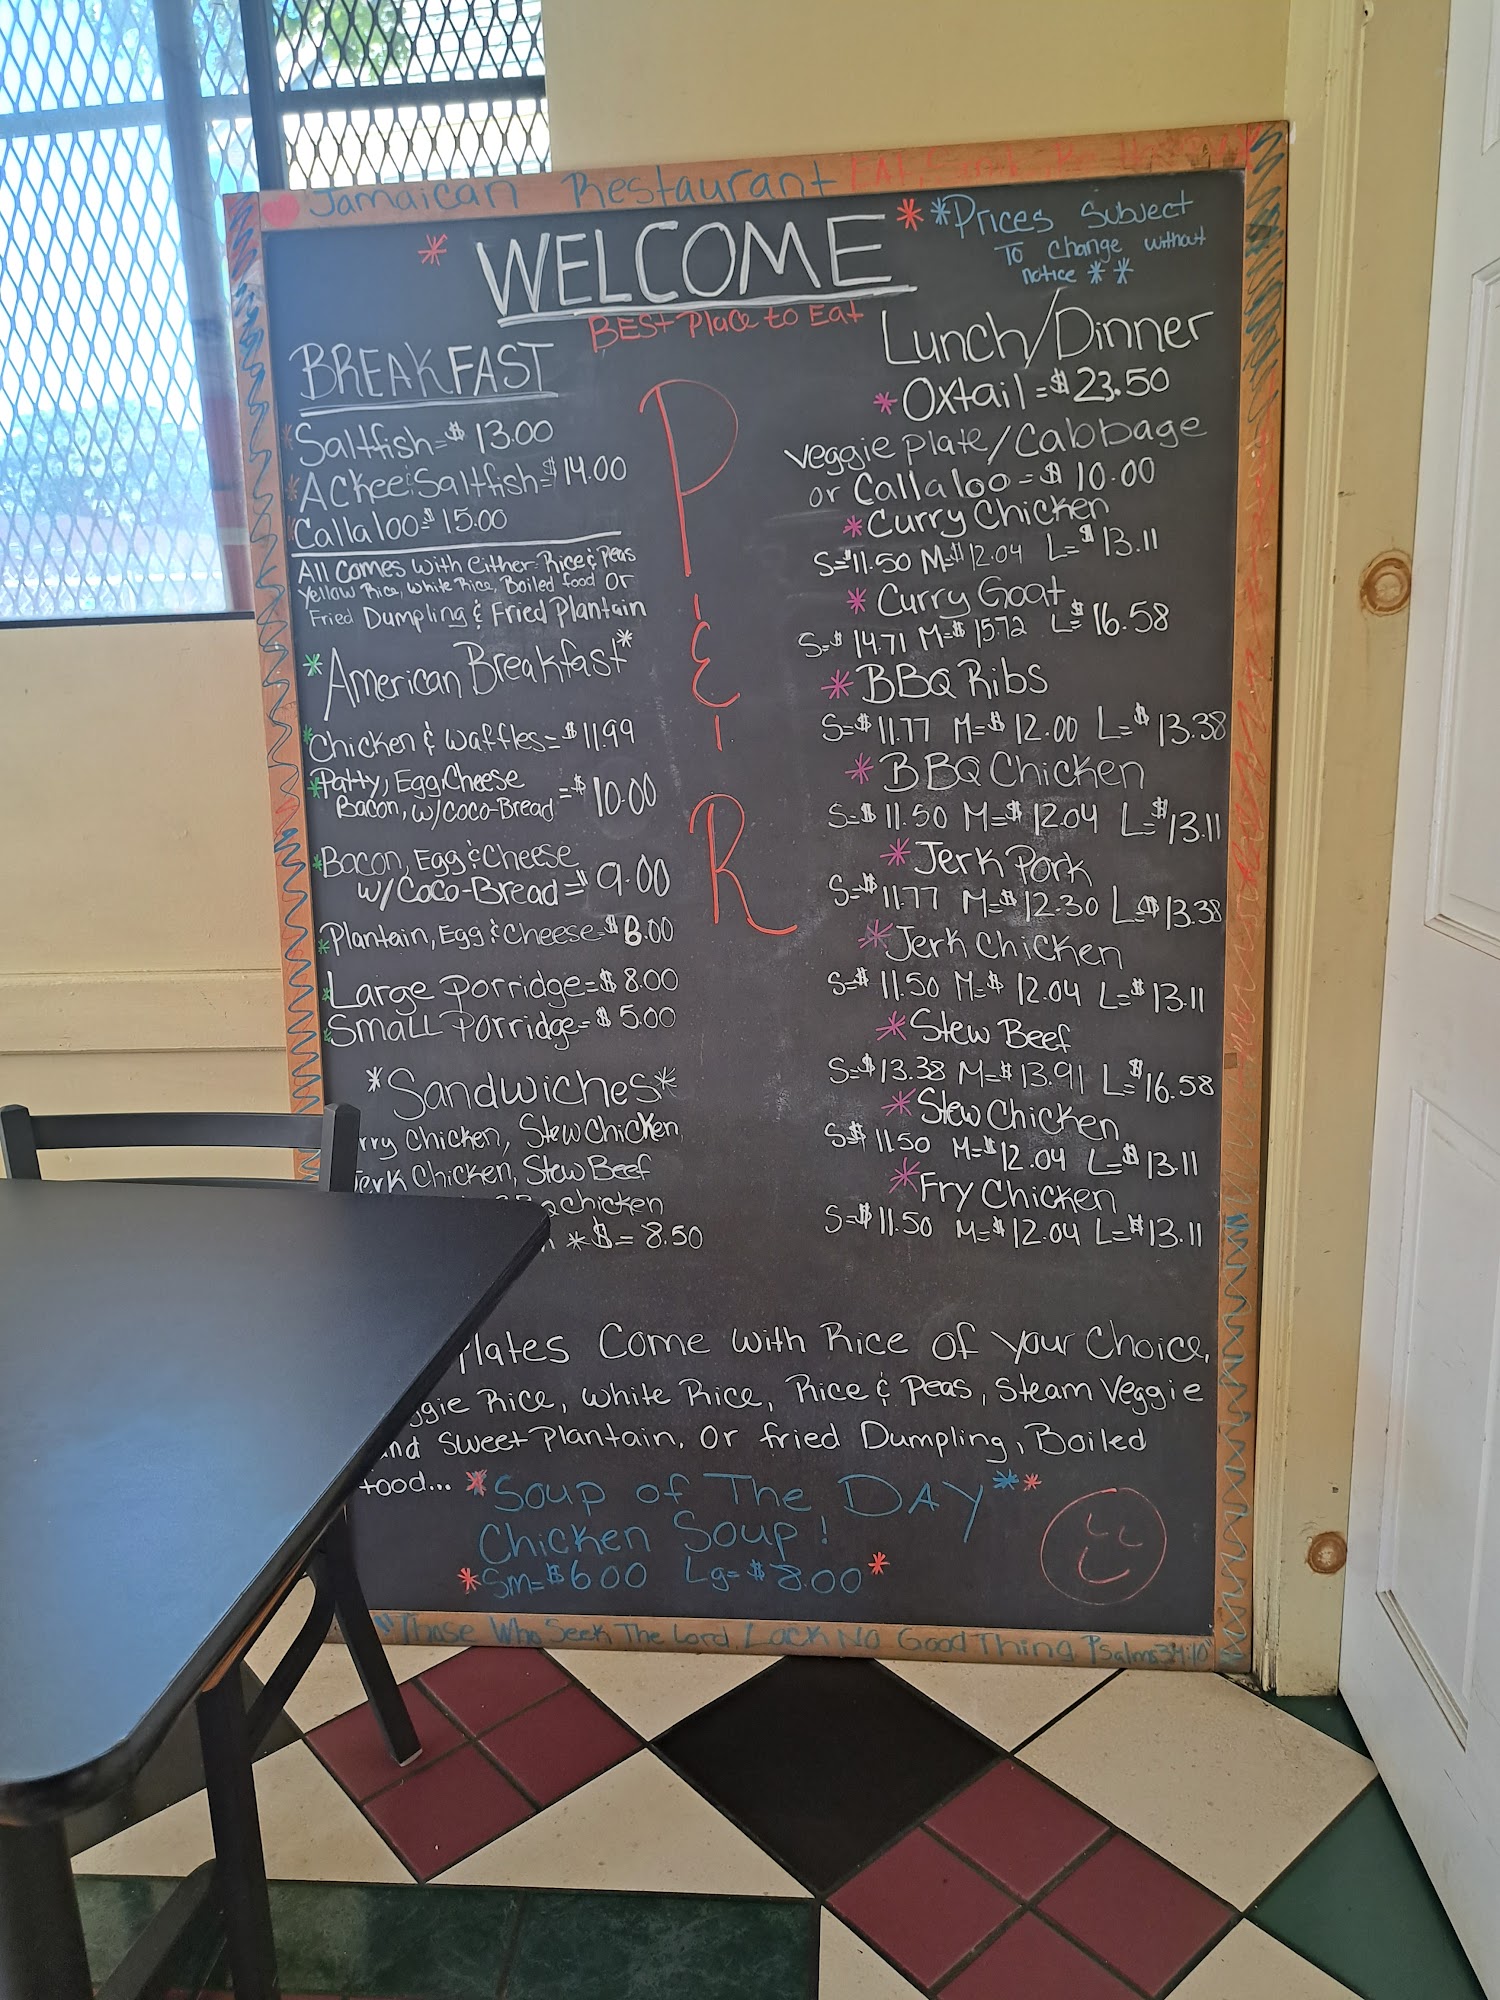 Jamaican Restaurant EAT
* WELCOME *
BEST Place to Eat
*Prices Subject
To Change without
notice * *
P & R
BREAKFAST
*Saltfish=$ 13.00
*Ackee & Saltfish=$ 14.00
*Callaloo=$ 15.00
All Comes with either Rice & Peas
Yellow Rice, White Rice, Boiled food Or
Fried Dumpling & Fried Plantain
*American Breakfast*
*Chicken & Waffles=$ 11.99
*Patty, Egg, Cheese
Bacon, w/Coco-Bread =$ 10.00
*Bacon, Egg & Cheese
w/Coco-Bread =$ 9.00
*Plantain, Egg & Cheese=$ 8.00
*Large Porridge=$ 8.00
*Small Porridge=$ 5.00
*Sandwiches*
rry Chicken, Stew Chicken,
Jerk Chicken, Stew Beef
BQ Chicken
*$= 8.50
Lunch/Dinner
*Oxtail=$ 23.50
Veggie Plate/Cabbage
or Callaloo=$ 10.00
*Curry Chicken
S=$11.50 M=$12.04 L=$13.11
*Curry Goat
S=$14.71 M=$15.72 L=$16.58
*BBQ Ribs
S=$11.77 M=$12.00 L=$13.38
*BBQ Chicken
S=$11.50 M=$12.04 L=$13.11
*Jerk Pork
S=$11.77 M=$12.30 L=$13.38
*Jerk Chicken
S=$11.50 M=$12.04 L=$13.11
*Stew Beef
S=$13.38 M=$13.91 L=$16.58
*Stew Chicken
S=$11.50 M=$12.04 L=$13.11
*Fry Chicken
S=$11.50 M=$12.04 L=$13.11
Plates Come with Rice of your Choice,
ggie Rice, White Rice, Rice & Peas, Steam Veggie
and Sweet Plantain, Or fried Dumpling, Boiled
food...
*Soup of The DAY**
Chicken Soup!
*Sm=$6.00 Lg=$8.00*
"Those Who Seek The Lord, Lack No Good Thing Psalms 34:10"